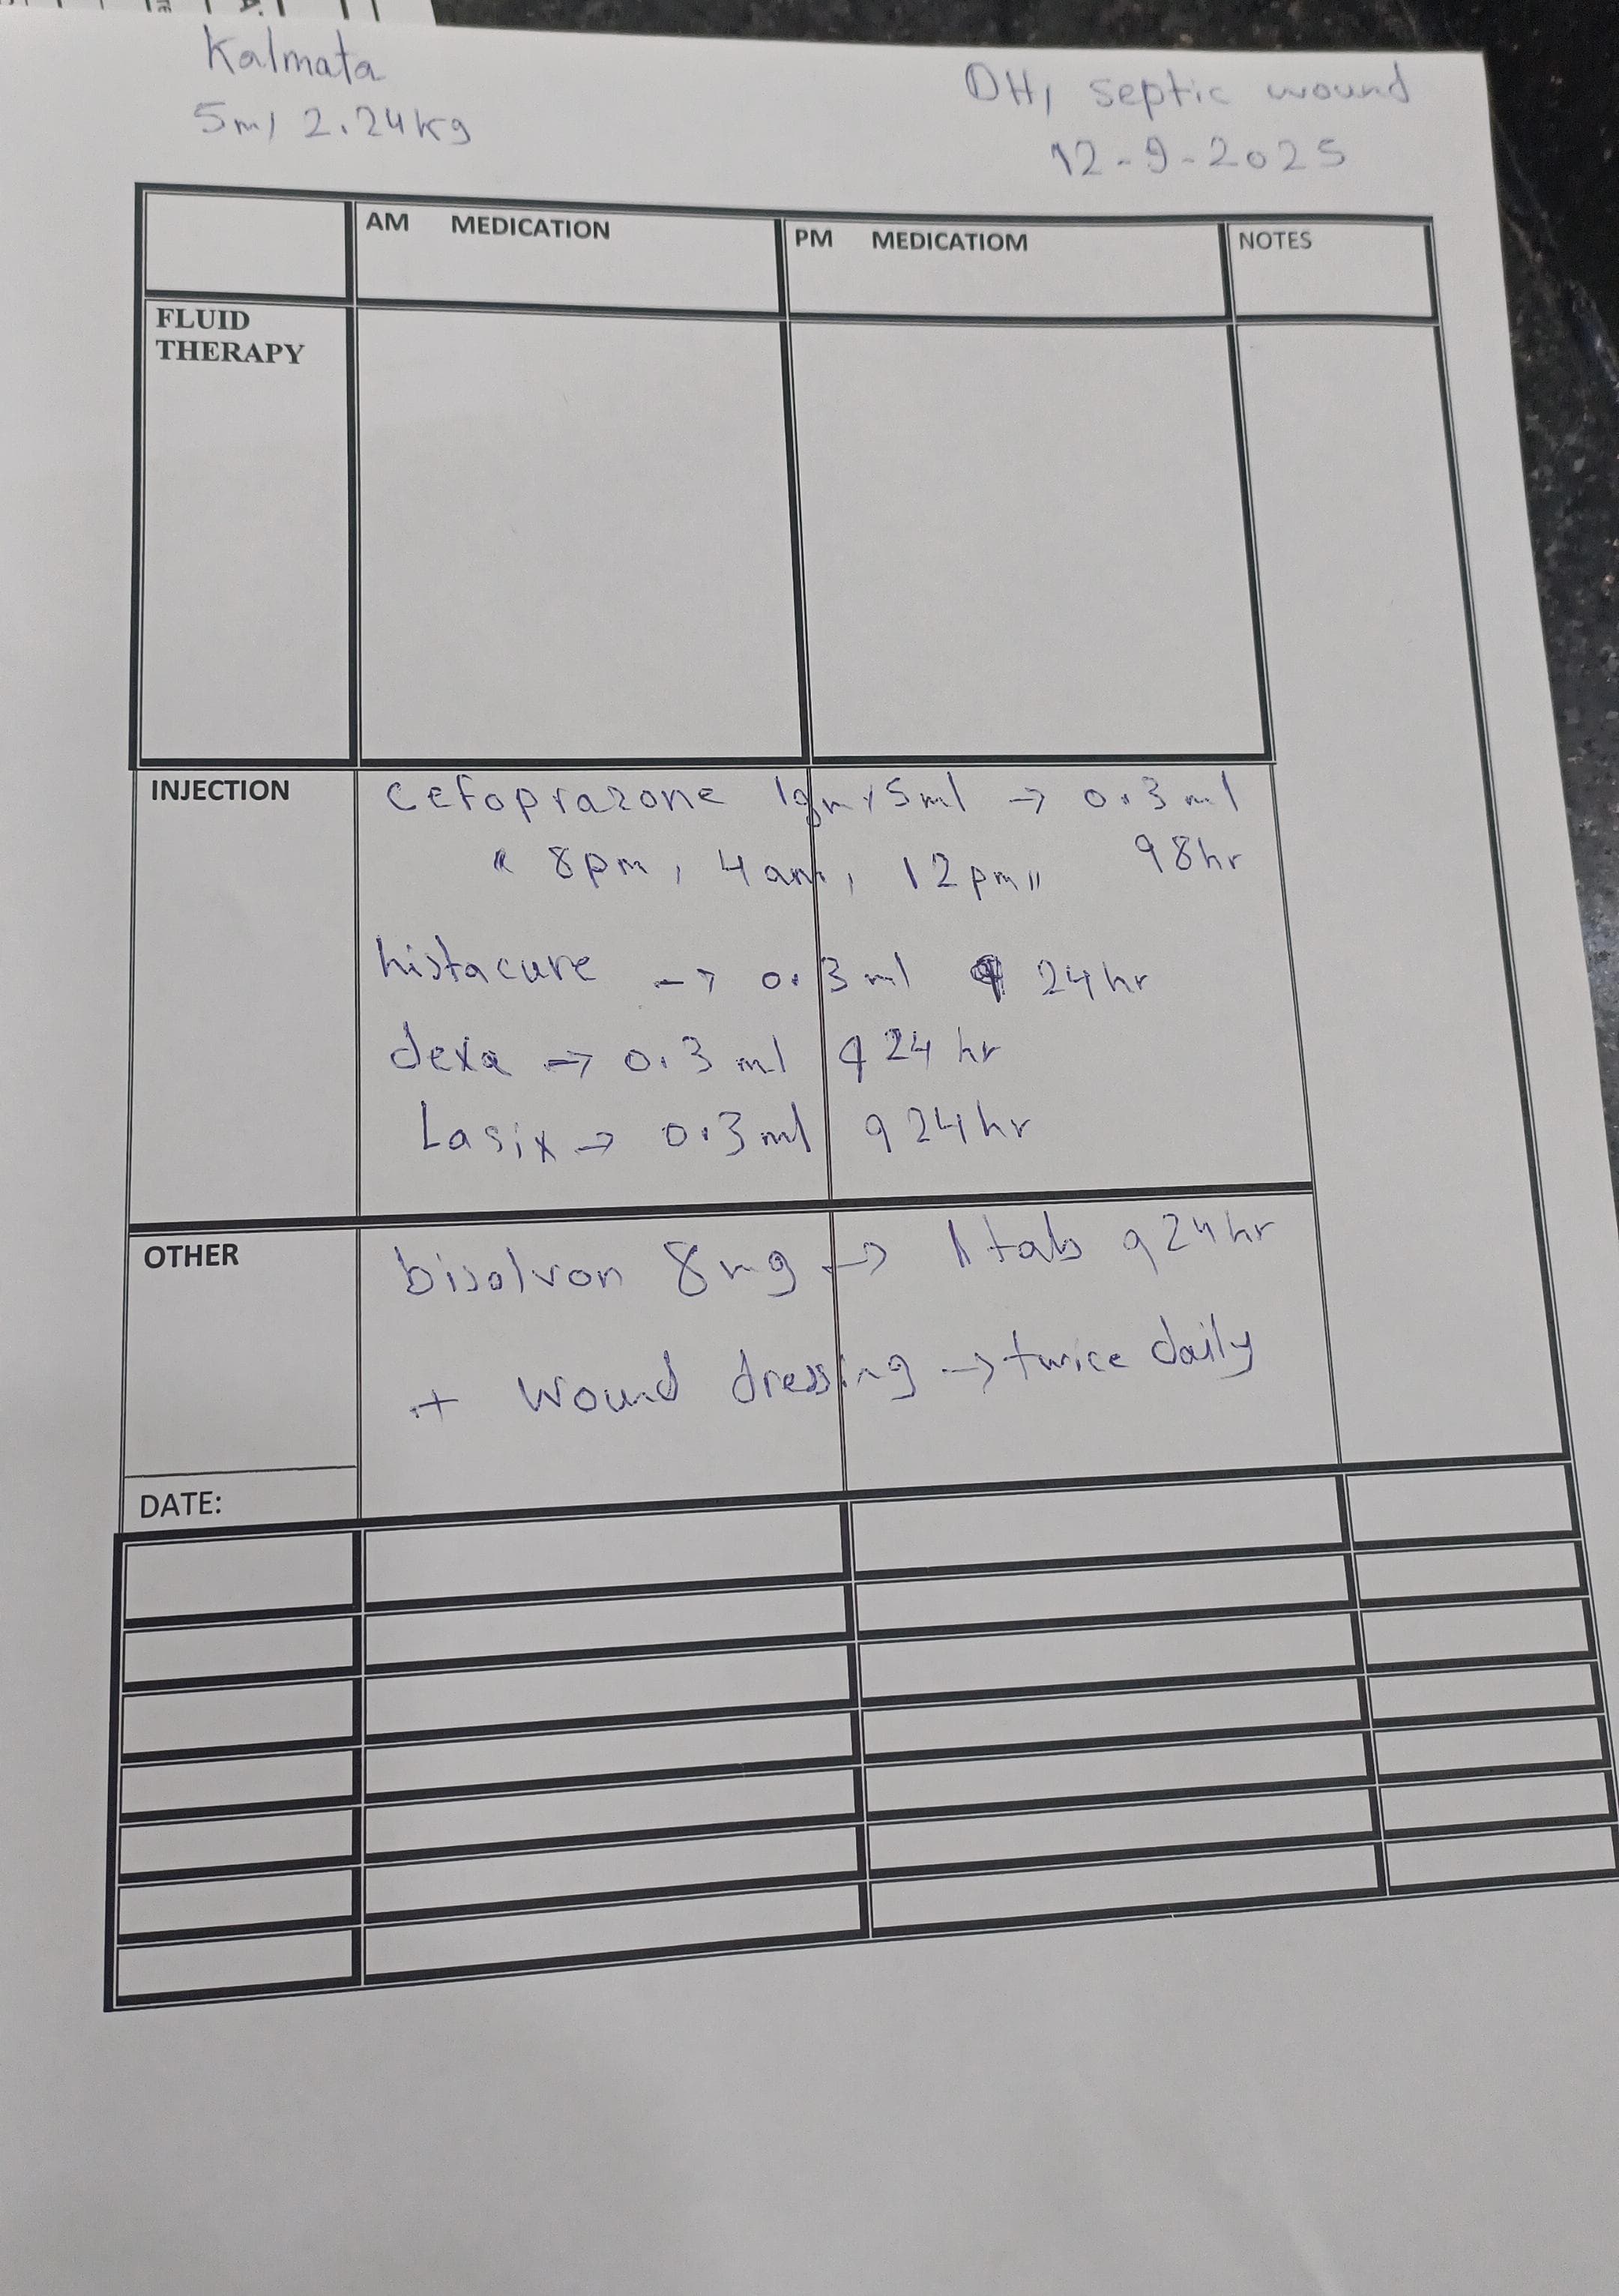 Kalmata
5m, 2.24 kg
DH, septic wound
12-9-2025
AM MEDICATION
PM MEDICATIOM
NOTES
FLUID
THERAPY
INJECTION
cefoprazone 1gm/5ml → 0.3 ml
" 8pm, 4am, 12pm" q8hr
histacure → 0.3 ml q 24hr
dexa → 0.3 ml q 24 hr
Lasix → 0.3ml q 24hr
OTHER
bisolvon 8mg → 1 tab q 24hr
+ wound dressing → twice daily
DATE: